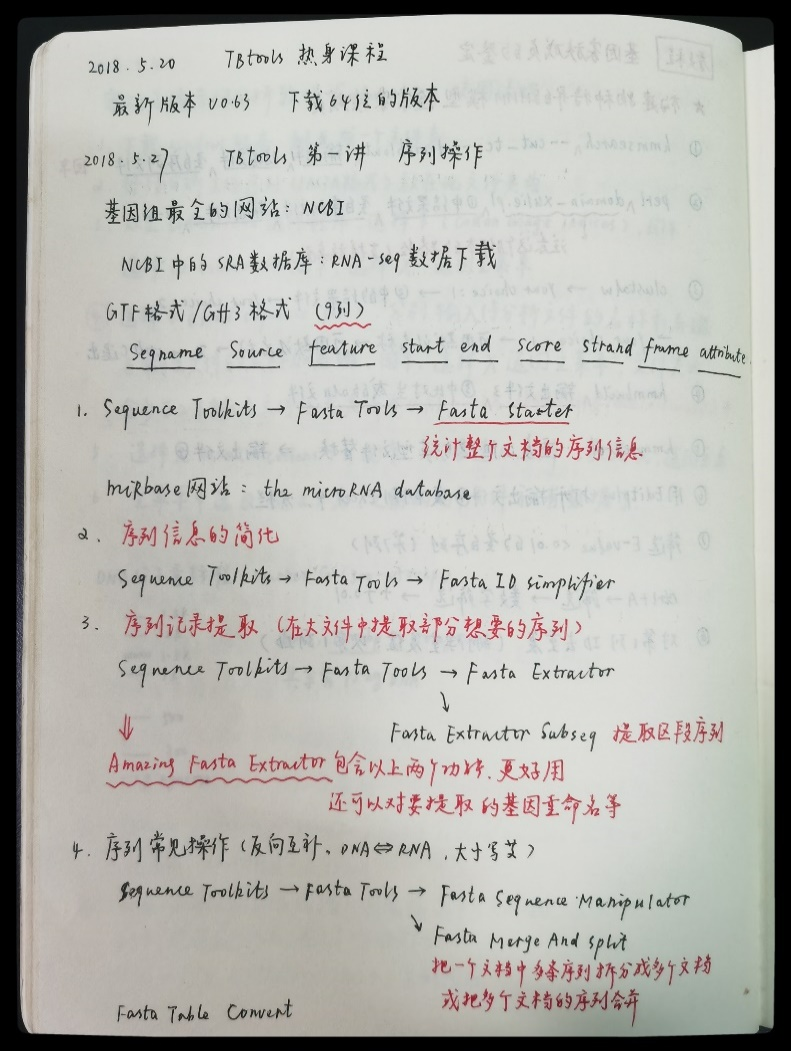 2018.5.20 TBtools 热身课程
最新版本 V0.63 下载64位的版本
2018.5.27 TBtools 第一讲 序列操作
基因组最全的网站：NCBI
NCBI中的SRA数据库：RNA-seq数据下载
GTF格式/GFF3格式（9列）
Seqname Source feature start end score strand frame attribute.
1. Sequence Toolkits → Fasta Tools → Fasta Stater
统计整个文档的序列信息
miRbase网站：the microRNA database
2. 序列信息的简化
Sequence Toolkits → Fasta Tools → Fasta ID simplifier
3. 序列记录提取（在大文件中提取部分想要的序列）
Sequence Toolkits → Fasta Tools → Fasta Extractor
↓ ↘
Fasta Extractor Subseq 提取区段序列
Amazing Fasta Extractor 包含以上两个功能、更好用
还可以对要提取的基因重命名等
4. 序列常见操作（反向互补、DNA⇔RNA、大小写等）
Sequence Toolkits → Fasta Tools → Fasta Sequence Manipulator
↘ Fasta Merge And split
把一个文档中多条序列拆分成多个文档
或把多个文档的序列合并
Fasta Table Convert